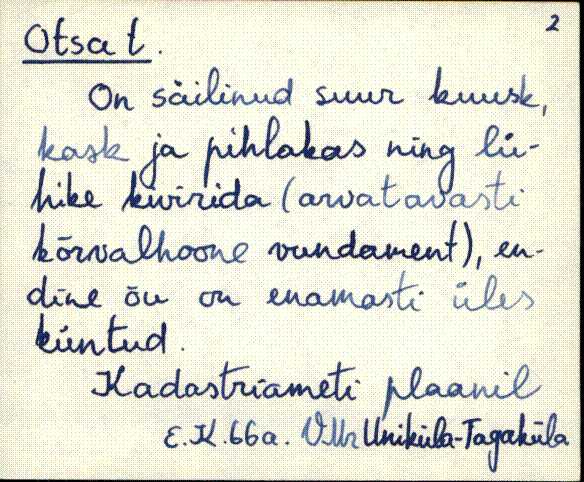 2
Otsa t.
On säilinud suur kuusk,
kask ja pihlakas ning lü-
hike kivirida (arvatavasti
kõrvalhoone vundament), en-
dine õu on enamasti üles
küntud.
Kadastriameti plaanil
E.K.66a. V.Mr Uniküla-Tagaküla